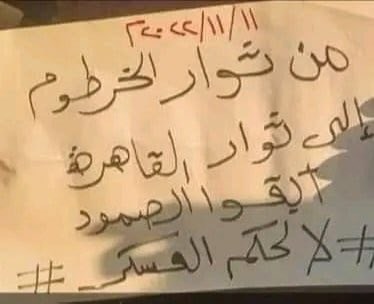 ٢٠٢٢/١١/١١
من ثوار الخرطوم
إلى ثوار القاهرة
أبقوا الصمود
# لا لحكم العسكر #